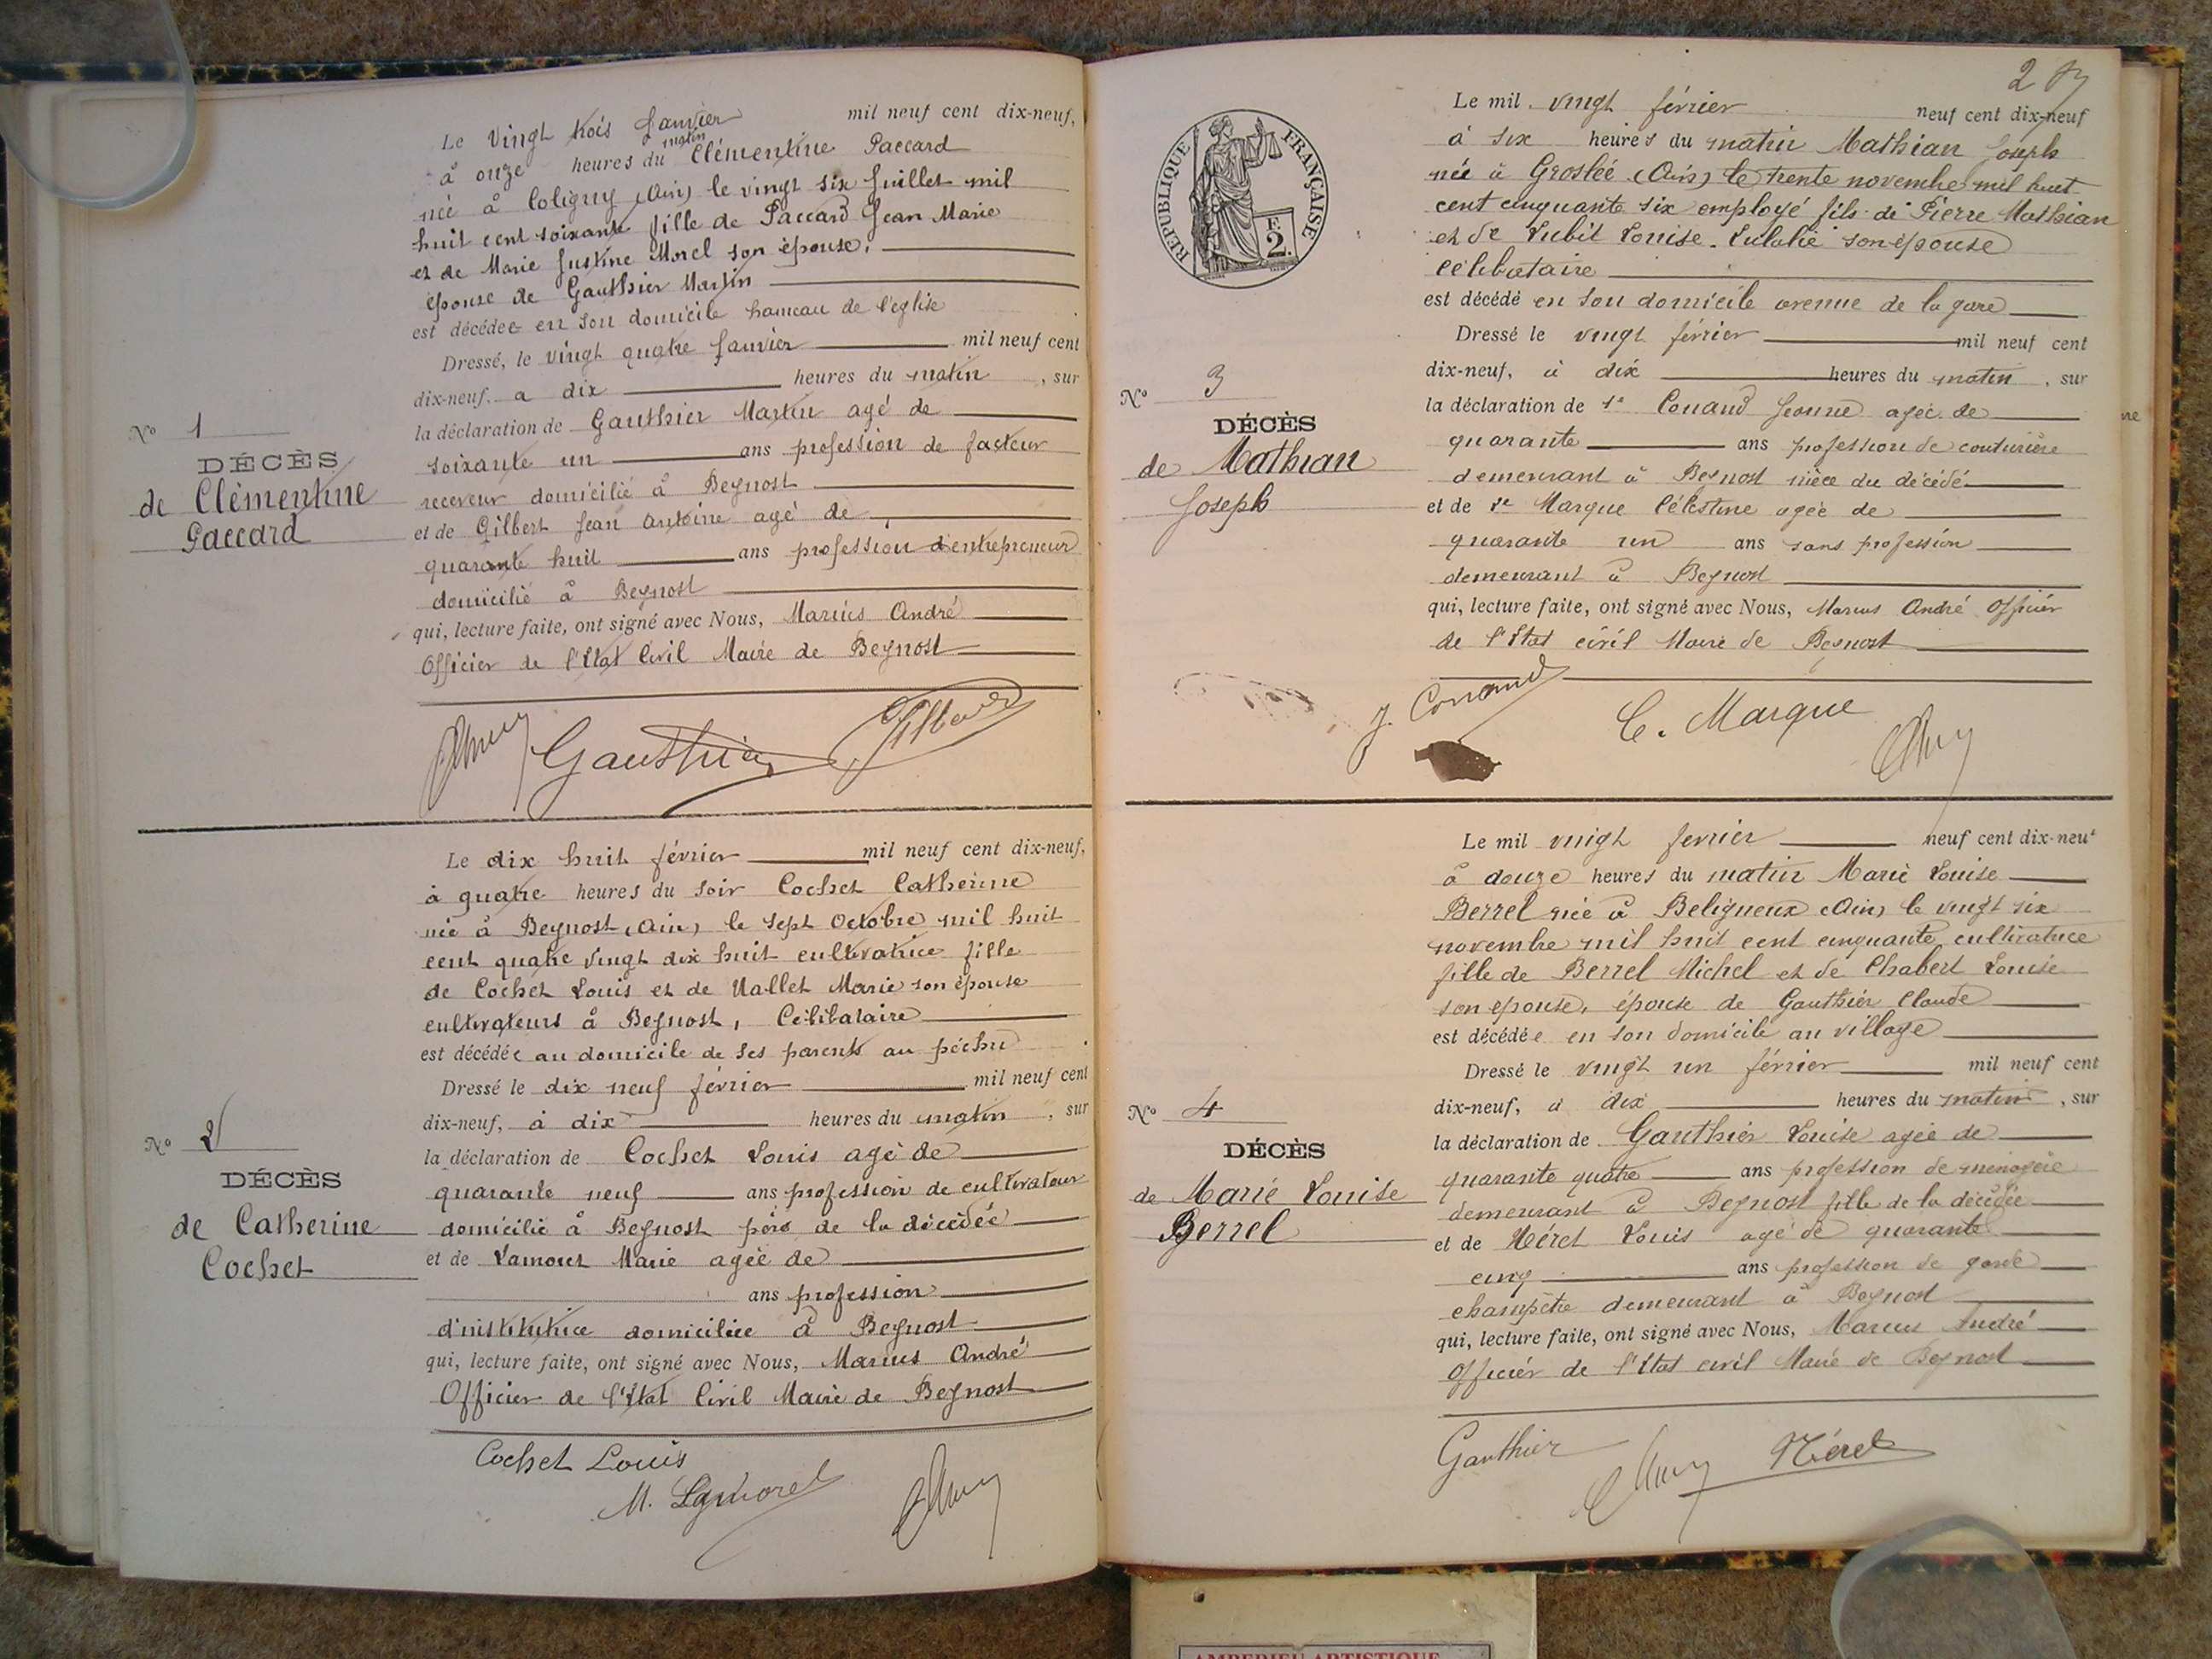 Le Vingt trois Janvier mil neuf cent dix-neuf,
à onze heures du matin Clémentine Paccard
née à Coligny (Ain) le vingt six Juillet mil
huit cent soixante fille de Paccard Jean Marie
et de Marie Justine Morel son épouse,
épouse de Gauthier Martin
est décédée en son domicile hameau de l'eglise
Dressé, le vingt quatre Janvier mil neuf cent
dix-neuf, a dix heures du matin, sur
la déclaration de Gauthier Martin agé de
soixante un ans profession de facteur
receveur domicilié à Beynost
et de Gilbert Jean Antoine agé de
quarante huit ans profession d'entrepreneur
domicilié à Beynost
qui, lecture faite, ont signé avec Nous, Marius André
Officier de l'Etat Civil Maire de Beynost
N° 1
DÉCÈS
de Clémentine
Paccard
Gauthier Gilbert
Le dix huit février mil neuf cent dix-neuf,
à quatre heures du soir Cochet Catherine
née à Beynost (Ain) le sept Octobre mil huit
cent quatre vingt dix huit cultivatrice fille
de Cochet Louis et de Vallet Marie son épouse
cultivateurs à Beynost, Célibataire
est décédée au domicile de ses parents au péchu
Dressé le dix neuf février mil neuf cent
dix-neuf, à dix heures du matin, sur
la déclaration de Cochet Louis agé de
quarante neuf ans profession de cultivateur
domicilié à Beynost père de la décédée
et de Lamoret Marie agée de
ans profession
d'institutrice domiciliée à Beynost
qui, lecture faite, ont signé avec Nous, Marius André
Officier de l'Etat Civil Maire de Beynost
N° 2
DÉCÈS
de Catherine
Cochet
Cochet Louis
M. Lamoret
2
RÉPUBLIQUE FRANÇAISE
F.
2.
Le mil vingt février neuf cent dix-neuf
à six heures du matin Mathian Joseph
née à Groslée (Ain) le trente novembre mil huit
cent cinquante six employé fils de Pierre Mathian
et de Lubit Louise Eulalie son épouse
célibataire
est décédé en son domicile avenue de la gare
Dressé le vingt février mil neuf cent
dix-neuf, à dix heures du matin, sur
la déclaration de 1° Conand Jeanne agée de
quarante ans profession de couturière
demeurant à Beynost nièce du décédé
et de 2e Marque Célestine agée de
quarante un ans sans profession
demeurant à Beynost
qui, lecture faite, ont signé avec Nous, Marius André Officier
de l'Etat civil Maire de Beynost
N° 3
DÉCÈS
de Mathian
Joseph
J. Conand
C. Marque
Le mil vingt fevrier neuf cent dix-neuf
à douze heures du matin Marie Louise
Berrel née à Beligneux (Ain) le vingt six
novembre mil huit cent cinquante cultivatrice
fille de Berrel Michel et de Chabert Louise
son epouse, épouse de Gauthier Claude
est décédée en son domicile au village
Dressé le vingt un février mil neuf cent
dix-neuf, à dix heures du matin, sur
la déclaration de Gauthier Louise agée de
quarante quatre ans profession de ménagère
demeurant à Beynost fille de la décédée
et de Néret Louis agé de quarante
cinq ans profession de garde
champêtre demeurant à Beynost
qui, lecture faite, ont signé avec Nous, Marius André
Officier de l'Etat civil Maire de Beynost
N° 4
DÉCÈS
de Marie Louise
Berrel
Gauthier
Néret
ne
AMBERIEU ARTISTIQUE